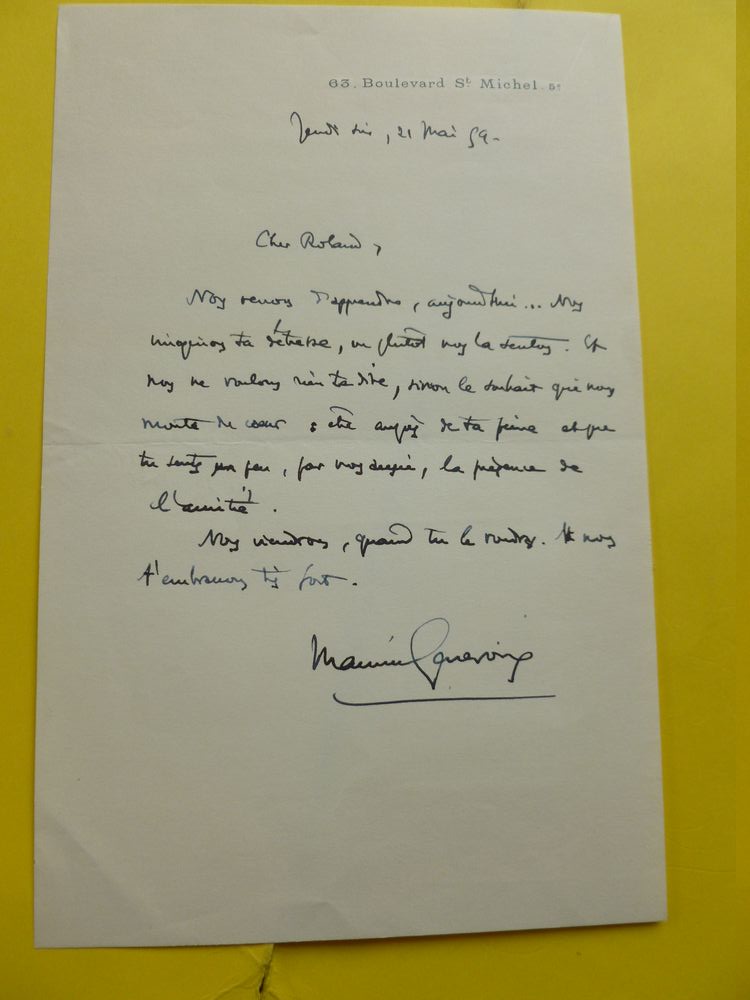 63, Boulevard St Michel. 5e
Jeudi soir, 21 Mai 59.
Cher Roland,
Nous venons d'apprendre, aujourd'hui... Nous
imaginons ta détresse, ou plutôt nous la sentons. Et
nous ne voulons rien te dire, sinon le souhait qui nous
monte du cœur : être auprès de ta peine et que
tu sentes un peu, par nous, la présence de
l'amitié.
Nous viendrons, quand tu le voudras. Et nous
t'embrassons très fort.